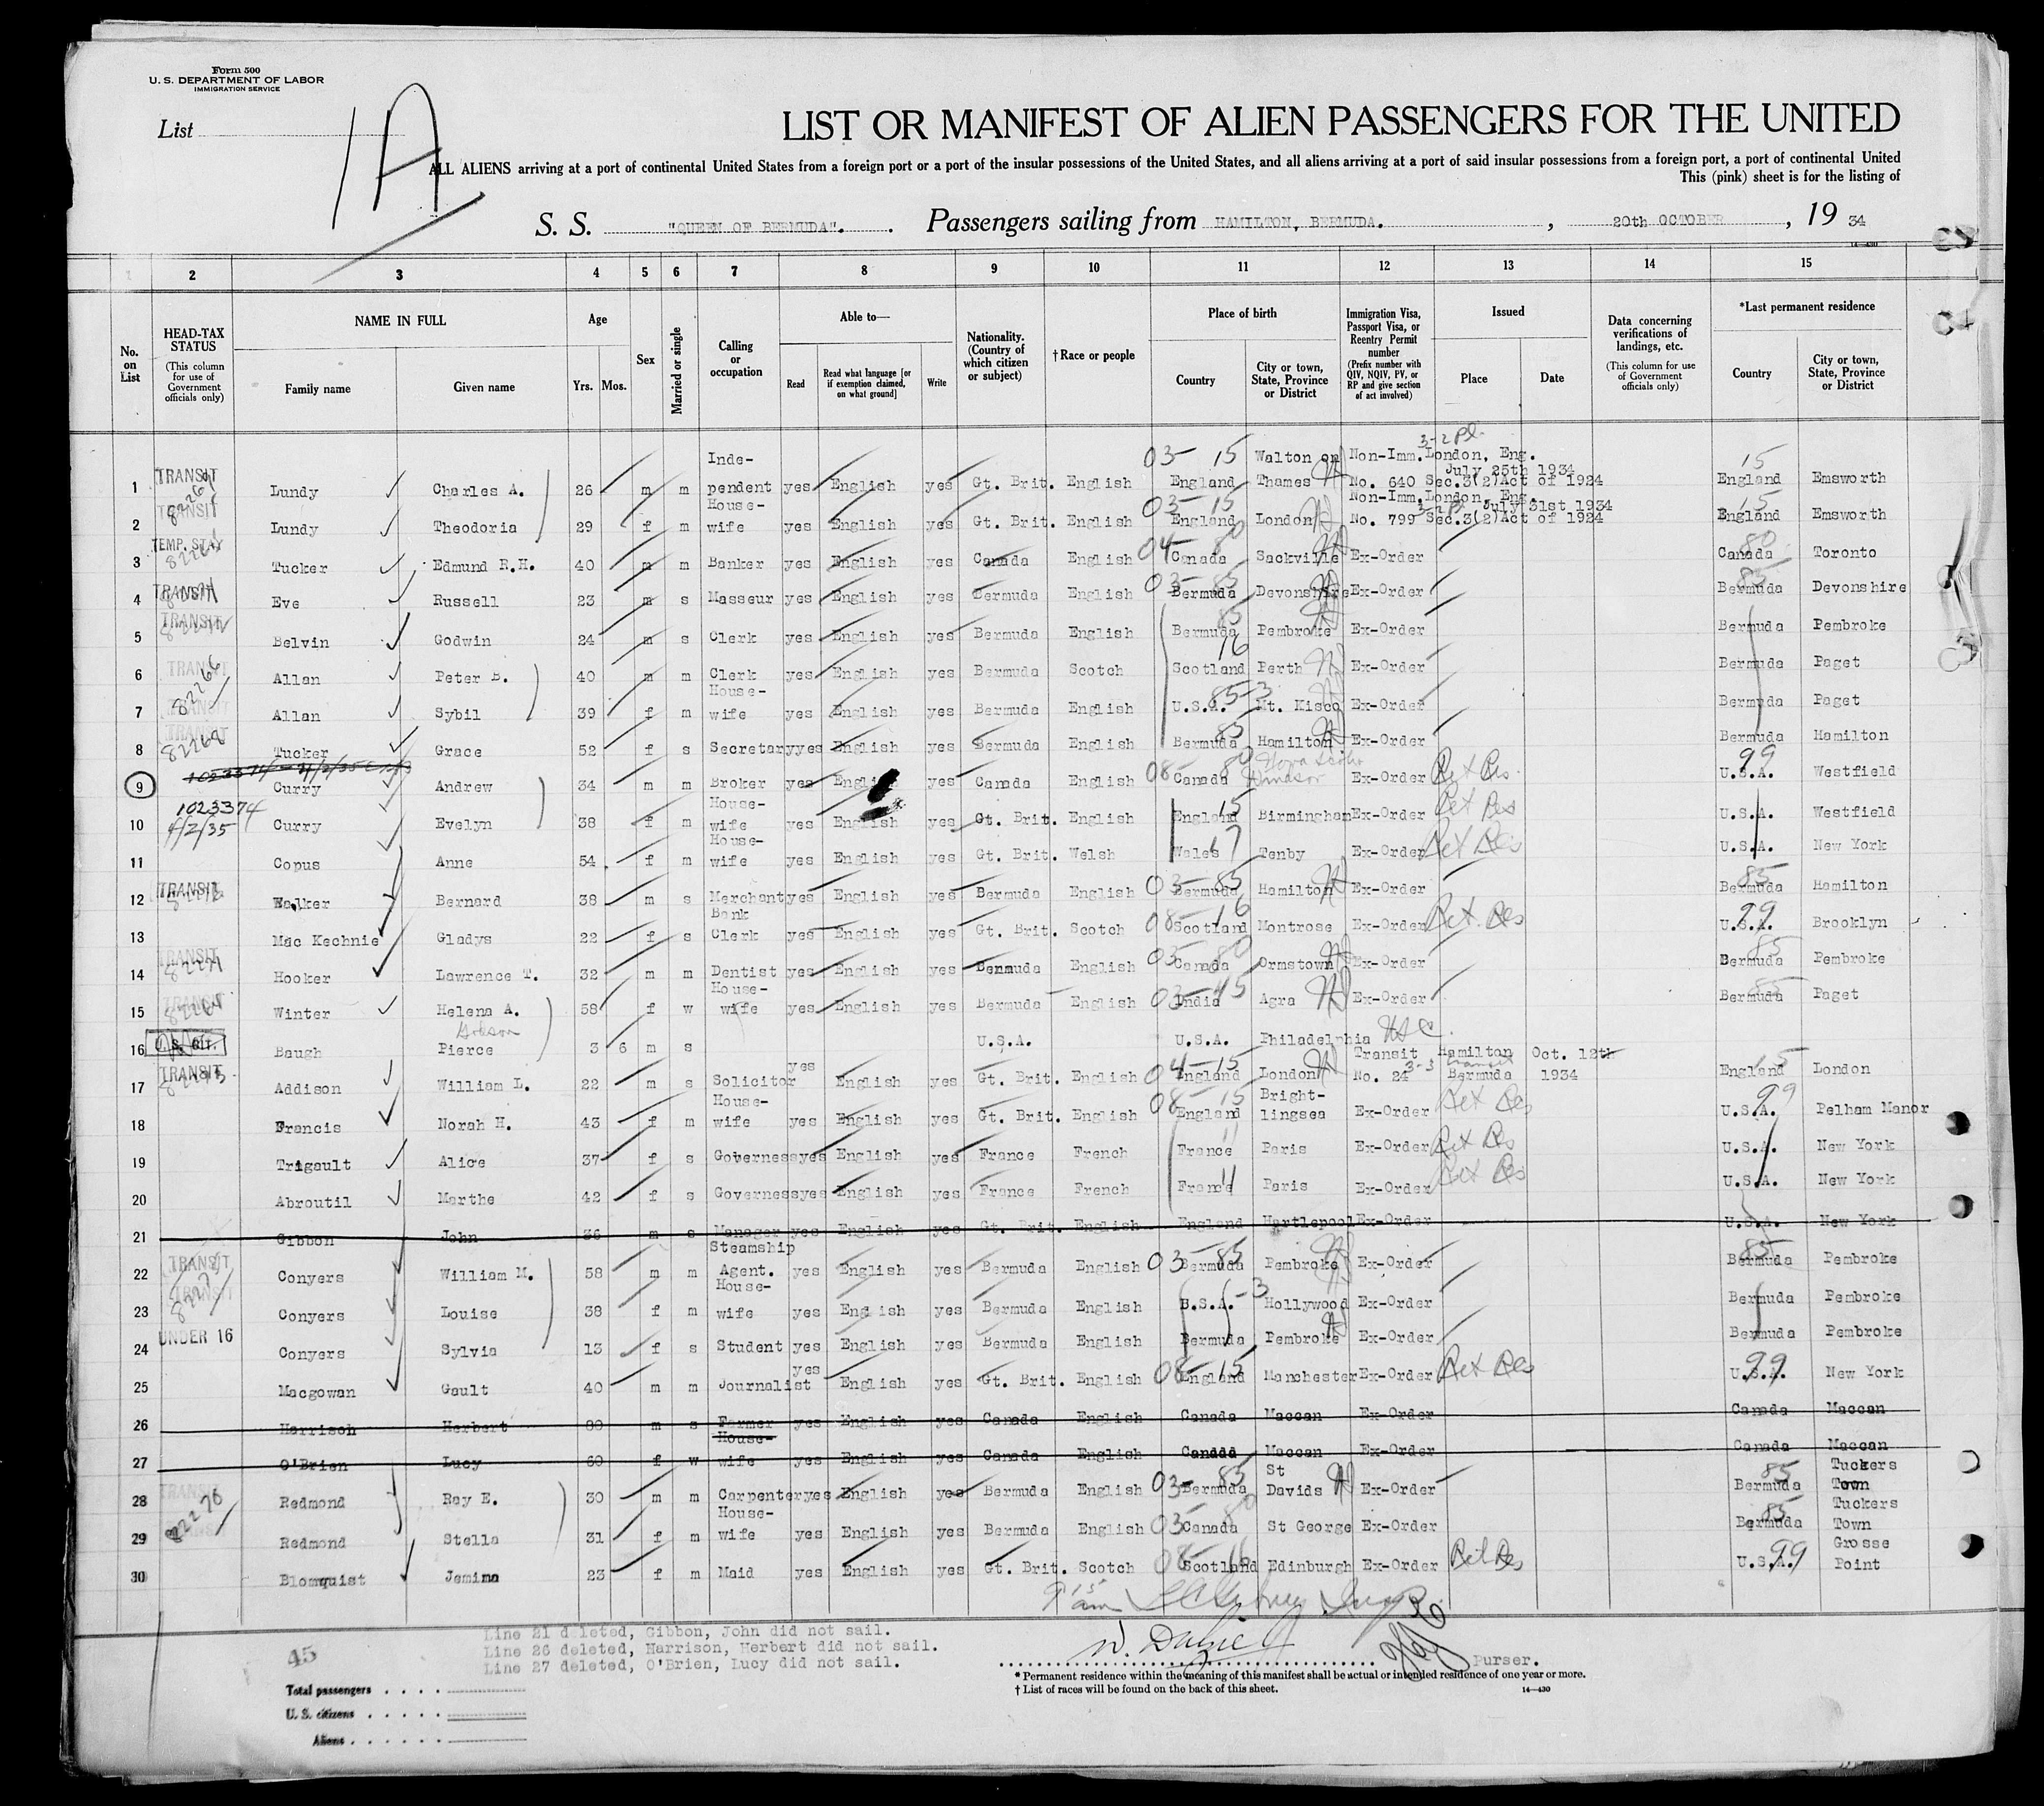 Form 500
U. S. DEPARTMENT OF LABOR
IMMIGRATION SERVICE
List
1A
LIST OR MANIFEST OF ALIEN PASSENGERS FOR THE UNITED
ALL ALIENS arriving at a port of continental United States from a foreign port or a port of the insular possessions of the United States, and all aliens arriving at a port of said insular possessions from a foreign port, a port of continental United
This (pink) sheet is for the listing of
S. S. "QUEEN OF BERMUDA". Passengers sailing from HAMILTON, BERMUDA. , 20th OCTOBER , 19 34
14-430
1 2 3 4 5 6 7 8 9 10 11 12 13 14 15
No. on List
HEAD-TAX STATUS (This column for use of Government officials only)
NAME IN FULL Family name Given name
Age Yrs. Mos.
Sex
Married or single
Calling or occupation
Able to— Read Read what language [or if exemption claimed, on what ground] Write
Nationality. (Country of which citizen or subject)
†Race or people
Place of birth Country City or town, State, Province or District
Immigration Visa, Passport Visa, or Reentry Permit number (Prefix number with QIV, NQIV, PV, or RP and give section of act involved)
Issued Place Date
Data concerning verifications of landings, etc. (This column for use of Government officials only)
*Last permanent residence Country City or town, State, Province or District
1 TRANSIT Lundy Charles A. 26 m m Inde-pendent yes English yes Gt. Brit. English 03 - 15 England Walton on Thames Non-Imm. London, Eng. July 25th 1934 No. 640 Sec.3(2)Act of 1924 15 England Emsworth
2 TRANSIT Lundy Theodoria 29 f m House-wife yes English yes Gt. Brit. English 03 - 15 England London Non-Imm. London, Eng. July 31st 1934 No. 799 Sec.3(2)Act of 1924 15 England Emsworth
3 TEMP. STAY Tucker Edmund R.H. 40 m m Banker yes English yes Canada English 04 - 80 Canada Sackville Ex-Order 80 Canada Toronto
4 TRANSIT Eve Russell 23 m s Masseur yes English yes Bermuda English 03 - 85 Bermuda Devonshire Ex-Order 85 Bermuda Devonshire
5 TRANSIT Belvin Godwin 24 m s Clerk yes English yes Bermuda English 85 Bermuda Pembroke Ex-Order Bermuda Pembroke
6 TRANSIT 82266 Allan Peter B. 40 m m Clerk yes English yes Bermuda Scotch 16 Scotland Perth Ex-Order Bermuda Paget
7 TRANSIT Allan Sybil 39 f m House-wife yes English yes Bermuda English 85-3 U.S.A. Mt. Kisco Ex-Order Bermuda Paget
8 TRANSIT 82268 Tucker Grace 52 f s Secretary yes English yes Bermuda English 85 Bermuda Hamilton Ex-Order Bermuda Hamilton
9 Curry Andrew 34 m m Broker yes English yes Canada English 08 - 80 Canada Nova Scotia Windsor Ex-Order Ret Res. 99 U.S.A. Westfield
10 1023374 4/2/35 Curry Evelyn 38 f m House-wife yes English yes Gt. Brit. English 15 England Birmingham Ex-Order Ret Res U.S.A. Westfield
11 Copus Anne 54 f m House-wife yes English yes Gt. Brit. Welsh 17 Wales Tenby Ex-Order Ret Res U.S.A. New York
12 TRANSIT Walker Bernard 38 m s Merchant yes English yes Bermuda English 03 - 85 Bermuda Hamilton Ex-Order 85 Bermuda Hamilton
13 Mac Kechnie Gladys 22 f s Bank Clerk yes English yes Gt. Brit. Scotch 08 - 16 Scotland Montrose Ex-Order Ret. Res 99 U.S.A. Brooklyn
14 TRANSIT Hooker Lawrence T. 32 m m Dentist yes English yes Bermuda English 03 - 80 Canada Ormstown Ex-Order 85 Bermuda Pembroke
15 TRANSIT Winter Helena A. 58 f w House-wife yes English yes Bermuda English 03 - 45 India Agra Ex-Order 85 Bermuda Paget
16 U.S. CIT. Baugh Pierce 3 6 m s U.S.A. U.S.A. Philadelphia USC.
17 TRANSIT Addison William L. 22 m s Solicitor yes English yes Gt. Brit. English 04 - 15 England London Transit No. 24 3-3 Hamilton Bermuda Oct. 12th 1934 15 England London
18 Francis Norah H. 43 f m House-wife yes English yes Gt. Brit. English 08 - 15 England Bright-lingsea Ex-Order Ret Res 99 U.S.A. Pelham Manor
19 Trigault Alice 37 f s Governess yes English yes France French 11 France Paris Ex-Order Ret Res U.S.A. New York
20 Abroutil Marthe 42 f s Governess yes English yes France French 11 France Paris Ex-Order Ret Res U.S.A. New York
21 Gibbon John 36 m s Manager yes English yes Gt. Brit. English England Hartlepool Ex-Order U.S.A. New York
22 TRANSIT Conyers William M. 58 m m Steamship Agent. yes English yes Bermuda English 03 - 85 Bermuda Pembroke Ex-Order 85 Bermuda Pembroke
23 TRANSIT Conyers Louise 38 f m House-wife yes English yes Bermuda English B.S.A. -3 Hollywood Ex-Order Bermuda Pembroke
24 UNDER 16 Conyers Sylvia 13 f s Student yes English yes Bermuda English Bermuda Pembroke Ex-Order Bermuda Pembroke
25 Macgowan Gault 40 m m Journalist yes English yes Gt. Brit. English 08 - 15 England Manchester Ex-Order Ret Res 99 U.S.A. New York
26 Harrisch Herbert 80 m s Farmer yes English yes Canada English Canada Maccan Ex-Order Canada Maccan
27 O'Brien Lucy 60 f w House-wife yes English yes Canada English Canada Maccan Ex-Order Canada Maccan
28 TRANSIT 82276 Redmond Ray E. 30 m m Carpenter yes English yes Bermuda English 03 - 85 Bermuda St Davids Ex-Order 85 Bermuda Tuckers Town
29 TRANSIT Redmond Stella 31 f m House-wife yes English yes Bermuda English 03 80 Canada St George Ex-Order 85 Bermuda Tuckers Town
30 Blomquist Jemima 23 f m Maid yes English yes Gt. Brit. Scotch 08 - 16 Scotland Edinburgh Ex-Order Ret Res 99 U.S.A. Grosse Point
Line 21 deleted, Gibbon, John did not sail.
Line 26 deleted, Harrison, Herbert did not sail.
Line 27 deleted, O'Brien, Lucy did not sail.
45
Purser.
Total passengers
U. S. citizens
Aliens
* Permanent residence within the meaning of this manifest shall be actual or intended residence of one year or more.
† List of races will be found on the back of this sheet.
14-430